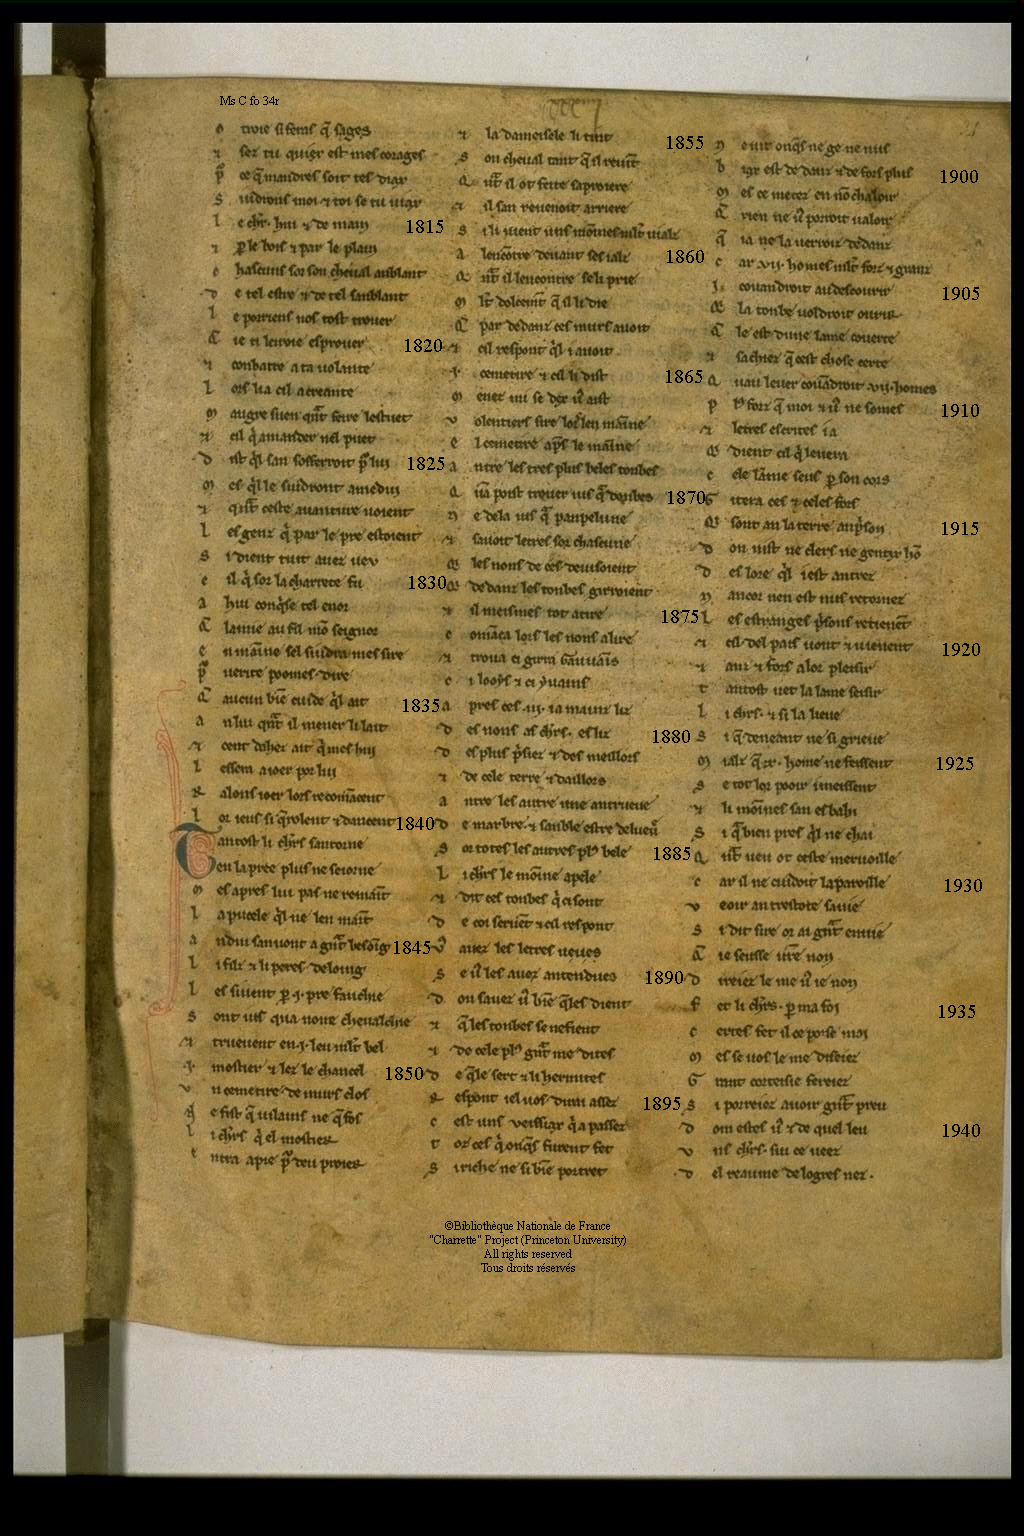 Ms C fo 34r
o troie si feras q̃ sages
⁊ ser tu quier est mes corages
p̃ ce q̃ mandres soit tes diax
S uidrons moi ⁊ toi se tu viax
l e chr̃. hui ⁊ demain 1815
⁊ ꝑ le bois ⁊ par le plain
c hascuns sor son cheval anblant
D e tel estre ⁊ de tel sanblant
l e porriens nos tost trover
Q ie ti leroie esprover 1820
⁊ conbatre a ta volante
l ors li a cil acreante
M augre suen q̃nt feire lestuet
⁊ cil q̃ amander nel puet
D ist q̃l san sofferroit p̃ lui 1825
M es q̃l le suidront amedui
⁊ qñt ceste avanture voient
l es genz q̃ par le pre estoient
S i dient tuit avez veu
c il q̃ sor la charrete fu 1830
a hui conq̃se tel enor
Q lamie au fil mõ seignor
e n mãine sel suidra mes sire
p̃ verite poomes dire
Q aucun biẽ cuide q̃l ait 1835
a n lui qñt il mener li lait
⁊ cent dahez ait q̃ mes hui
l essera a ioer por lui
R alons ioer lors recomãcent
l or ieus si q̃rolent ⁊ dancent 1840
T antost li chr̃s san torne
en la pree plus ne seiorne
M es apres lui pas ne remaĩt
l a pucele q̃l ne len maĩt
a ndui san vont a gñt besoĩg 1845
l i filz ⁊ li peres de loing
l es sivent ꝑ .i. pre fauchie
S ont iusqua none chevalchie
⁊ truevent en .i. leu mlt̃ bel
.i. mostier ⁊ lez le chancel 1850
v n cemetire de murs clos
N e fist q̃ vilains ne q̃ fos
l i chr̃s q̃ el mostier
e ntra a pie p̃ deu proier
⁊ la dameisele li tint 1855
S on cheval tant q̃ il revint
Q ñt il ot feite sa proiere
⁊ il san revenoit arriere
S i li vient uns mõines mlt̃ vialz
A lencõtre devant ses ialz 1860
Q ñt il lencontre se li prie
M lt̃ dolcemẽt q̃ il li die
Q par dedanz ces murs avoit
⁊ cil respont q̃l i avoit
.I. cemetire ⁊ cil li dist 1865
M enez mi se dex ṽ aist
v olentiers sire lors len mãine
e l cemetire ap̃s le mãine
a ntre les tres plus beles tonbes
Q ña poist trover ius q̃ donbes 1870
N e dela ius q̃ panpelune
⁊ s avoit letres sor chascune
Q les nons de ces devisoient
Q dedanz les tonbes girroient
⁊ il meismes tot atire 1875
c omãca lors les nons a lire
⁊ trova ci girra Gauvaĩs
c i looys ⁊ ci yvains
a pres ces .iij. i a mainz liz
D es nons as chr̃s. esliz 1880
D es plus p̃siez ⁊ des meillors
⁊ de cele terre ⁊ daillors
a ntre les autres une an trueve
D e marbre ⁊ sanble estre de lueṽ
S or totes les autres pl9 bele 1885
L i chr̃s le moĩne apele
⁊ dit ces tonbes q̃ ci sont
D e coi servẽt ⁊ cil respont
V avez les letres veues
S e ṽ les avez antendues 1890
D on savez ṽ biẽ q̃les dient
⁊ q̃ les tonbes senefient
⁊ de cele pl9 gñt me dites
D e q̃le sert ⁊ li hermites
R espont iel vos dirai assez 1895
c est uns veissiax q̃ a passez
t oz ces q̃ onq̃s furent fet
S i riche ne si biẽ portret
N e vit onq̃s ne ge ne nus
b iax est dedanz ⁊ defors plus 1900
M es ce metez en nõ chaloir
Q rien ne ṽ porroit valoir
Q ia ne la verroiz dedanz
c ar .vij. homes mlt̃ forz ⁊ granz
I covandroit au descovrir 1905
Q la tonbe voldroit ovrir
Q le est dune lame coverte
⁊ sachiez q̃ cest chose certe
Q uau lever covãdroit .vij. homes
p l9 forz q̃ moi ⁊ ṽ ne somes 1910
⁊ letres escrites i a
Q dient cil q̃ levera
c ele lãme seus ꝑ son cors
G itera ces ⁊ celes fors
Q sont an la terre an p̃son 1915
D on nist ne clers ne gentix hõ
D es lore q̃l i est antrez
N ancor nen est nus retornez
l es estranges p̃sons retienẽt
⁊ cil del pais vont ⁊ vienent 1920
⁊ anz ⁊ fors a lor pleisir
t antost vet la lame seisir
l i chr̃s. ⁊ si la lieve
S i q̃ de neant ne si grieve
M ialz q̃ .x. home ne feissent 1925
S e tot lor pooir i meissent
⁊ li moĩnes san esbahi
S i q̃ bien pres q̃l ne chai
Q ñt veu ot ceste mervoille
c ar il ne cuidoit la paroille 1930
v eoir an trestote sa vie
S i dit sire or ai gñt envie
Q ie seusse vr̃e non
D ireiez le me ṽ ie non
f et li chr̃s. ꝑ ma foi 1935
c ertes fet il ce poise moi
M es se vos le me disiez
G rant corteisie fereiez
S i porreiez avoir gñt preu
D om estes ṽ ⁊ de quel leu 1940
v ns chr̃s. sui ce veez
D el reaume de logres nez.
©Bibliothèque Nationale de France
"Charrette" Project (Princeton University)
All rights reserved
Tous droits réservés